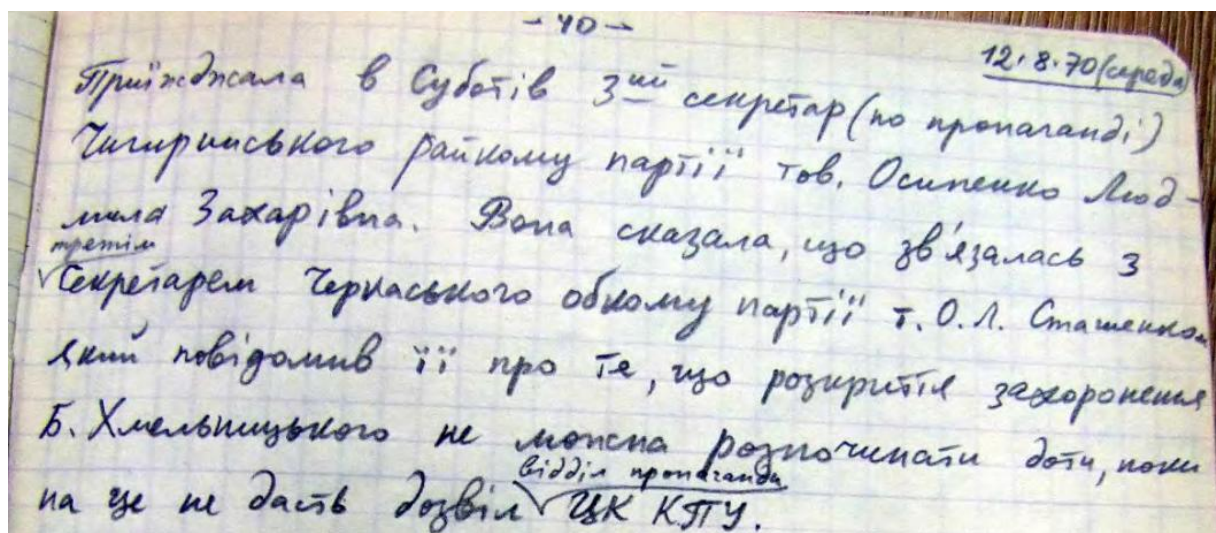 - 40 -
12.8.70 (середа)
Приїжджала в Суботів 3ий секретар (по пропаганді)
Чигиринського райкому партії тов. Осипенко Люд-
мила Захарівна. Вона сказала, що зв'язалась з
третім
Секретарем Черкаського обкому партії т. О.Л. Сташенком
який повідомив її про те, що розкриття захоронення
Б. Хмельницького не можна розпочинати доти, поки
відділ пропаганди
на це не дасть дозвіл ЦК КПУ.